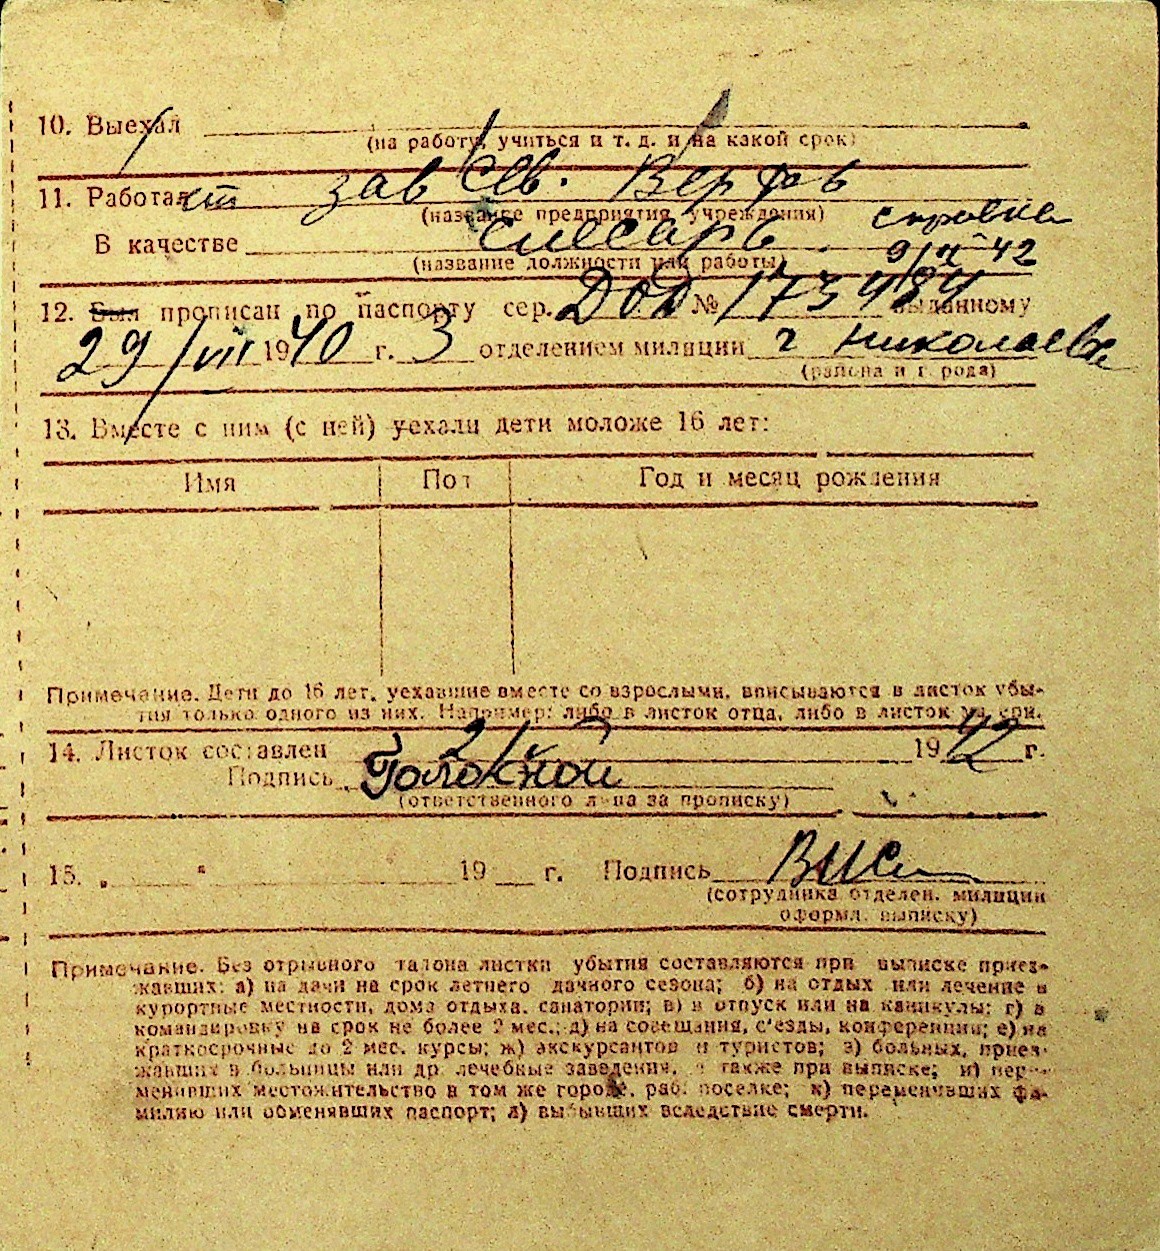 10. Выехал
(на работу, учиться и т. д. и на какой срок)
11. Работает зав Сев. Верфь
(название предприятия, учреждения)
справка
В качестве слесарь
9/II 42
(название должности или работы)
12. Был прописан по паспорту сер. ДОД № 173484 выданному
29/VII 1940 г. 3 отделением милиции г Николаева
(района и г рода)
13. Вместе с ним (с ней) уехали дети моложе 16 лет:
Имя Пол Год и месяц рождения
Примечание. Дети до 16 лет, уехавшие вместе со взрослыми, вписываются в листок убы-
тия только одного из них. Например: либо в листок отца, либо в листок матери.
14. Листок составлен 1942 г.
Подпись
(ответственного лица за прописку)
15. „ “ 19 г. Подпись
(сотрудника отделен. милиции
оформл. выписку)
Примечание. Без отрывного талона листки убытия составляются при выписке приез-
жавших: а) на дачи на срок летнего дачного сезона; б) на отдых или лечение в
курортные местности, дома отдыха, санатории; в) в отпуск или на каникулы; г) в
командировку на срок не более 2 мес.; д) на совещания, с'езды, конференции; е) на
краткосрочные до 2 мес. курсы; ж) экскурсантов и туристов; з) больных, приез-
жавших в больницы или др. лечебные заведения, а также при выписке; и) пере-
менивших местожительство в том же городе, раб. поселке; к) переменивших фа-
милию или обменявших паспорт; л) выбывших вследствие смерти.